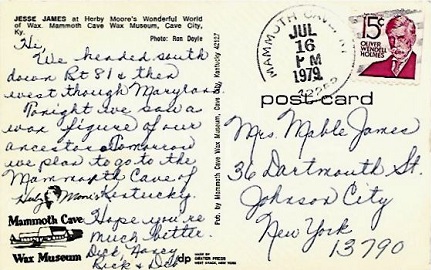 JESSE JAMES at Herby Moore's Wonderful World
of Wax. Mammoth Cave Wax Museum, Cave City,
Ky.
Photo: Ron Doyle
Hi,
We headed south
down Rt 81 & then
west though Maryland.
Tonight we saw a
wax figure of our
ancestor. Tomorrow
we plan to go to the
Mammoth Cave of
Kentucky.
Hope you're
much better.
Dick, Nancy
Rick & Deb
Herby Moore's
Mammoth Cave
Wax Museum
Pub. by Mammoth Cave Wax Museum, Cave City, Kentucky 42127
dp
MADE BY
DEXTER PRESS
WEST NYACK, NEW YORK
MAMMOTH CAVE, KY
JUL
16
PM
1979
42259
15¢
OLIVER
WENDELL
HOLMES
post card
Mrs. Mable James
36 Dartmouth St.
Johnson City
New York
13790